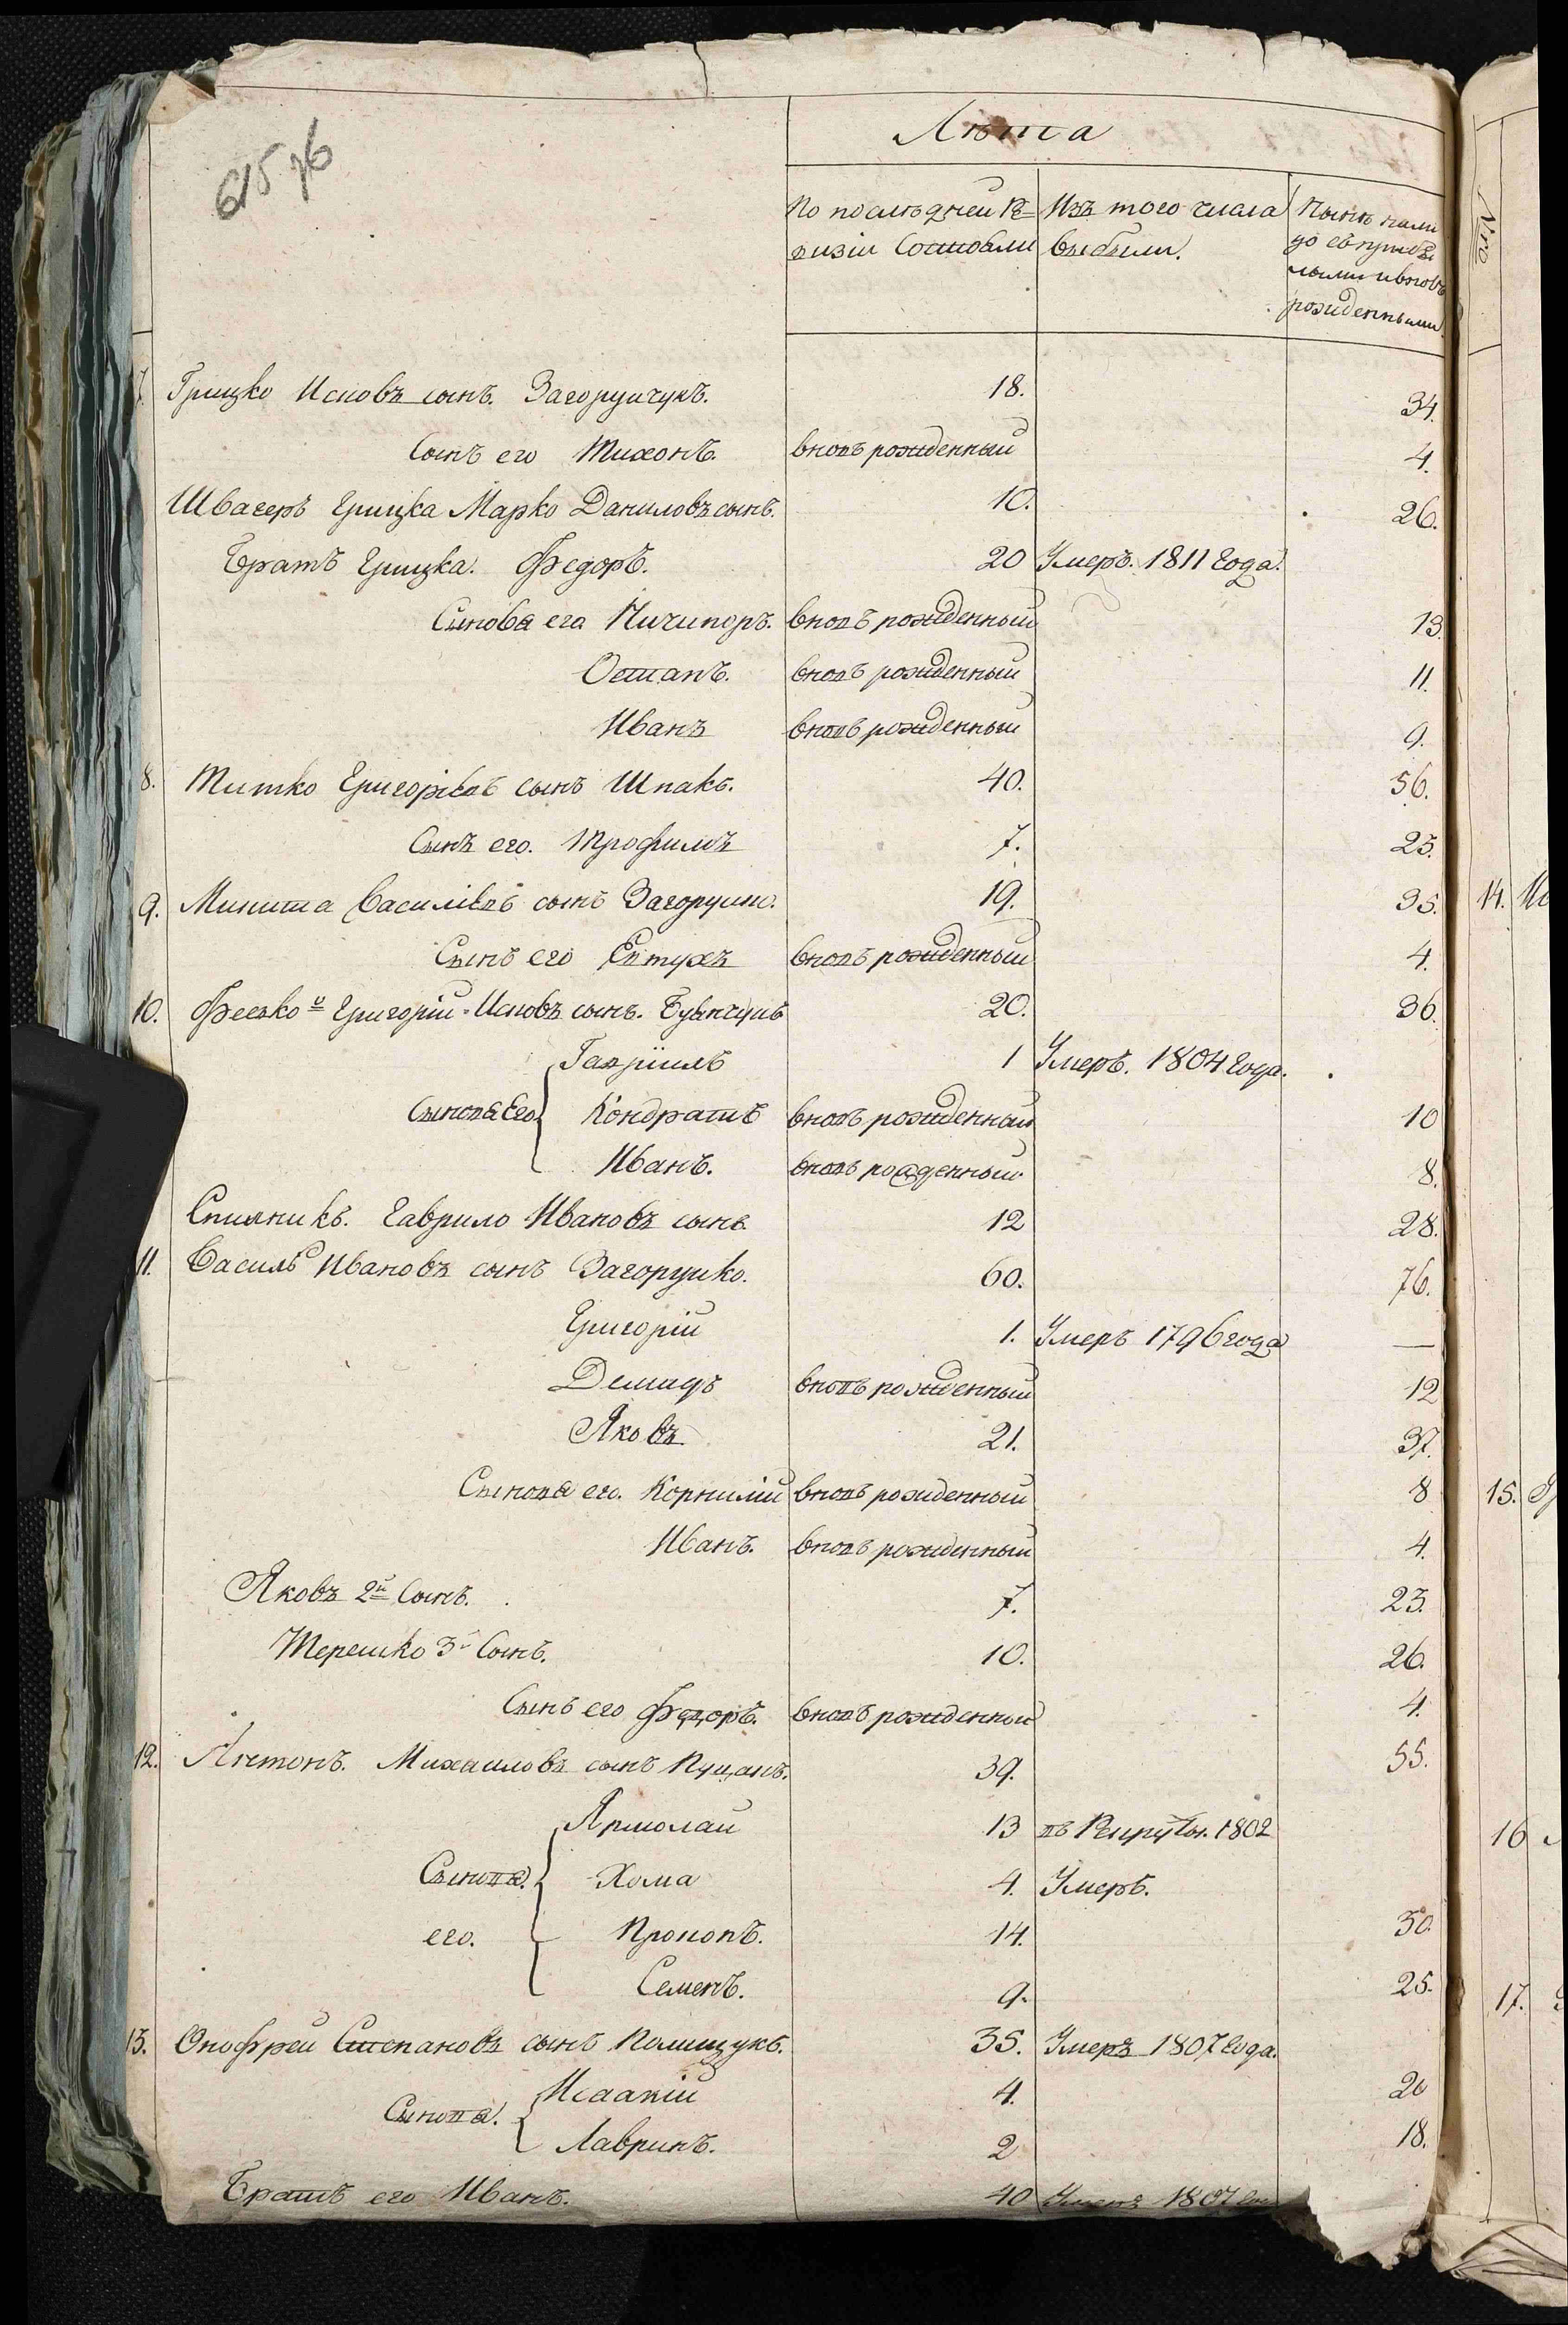 615 76
Лѣта
По послѣдней Ре-
визіи Состояли
Изъ того числа
выбыли.
Нынѣ нали
цо съ прибы
лыми и вновь
рожденными
7. Грицко Исковъ сынъ. Загоруичукъ. 18. 34.
Сынъ его Тихонъ. вновь рожденный 4.
Швагеръ Грицка Марко Даниловъ сынъ. 10. 26.
Братъ Грицка. Федоръ. 20 Умеръ. 1811 Года.
Синовя его Ничипоръ. вновь рожденный 13.
Остапъ. вновь рожденный 11.
Иванъ вновь рожденный 9.
8. Титко Григорівъ сынъ Шпакъ. 40. 56.
Сынъ его. Трофимъ 7. 23.
9. Микита Василівъ сынъ Загоруико. 19. 35.
Сынъ его Евтухъ вновь рожденный 4.
10. Феско и Григорій Исковъ сынъ. 20. 36.
Гавріилъ 1 Умеръ. 1804 Года.
Сыновя Его Кондратъ вновь рожденный 10
Иванъ. вновь рожденный. 8.
Спилникъ. Гаврило Ивановъ сынъ 12 28.
11. Василь Ивановъ сынъ Загоруико. 60. 76.
Григорій 1. Умеръ 1796 года —
Демидъ вновь рожденный 12
Яковъ 21. 37.
Сыновя его. Корнилій вновь рожденный 8
Иванъ. вновь рожденный 4.
Яковъ 2й Сынъ. 7. 23.
Терешко 3й Сынъ. 10. 26.
Сынъ его Федоръ. вновь рожденный 4.
12. Антонъ. Михаиловъ сынъ Куцанъ. 39. 55.
Ярмолаи 13 въ Рекруты. 1802
Сынова. Хома 4. Умеръ.
его. Прокопъ. 14. 30.
Семенъ. 9. 25.
13. Онофреи Степановъ сынъ Полищукъ. 35. Умеръ 1807 Года.
Исаакій 4. 20
Сынова. Лавринъ. 2 18.
Братъ его Иванъ. 40 Умеръ 1807
Nro
14.
15.
16
17.